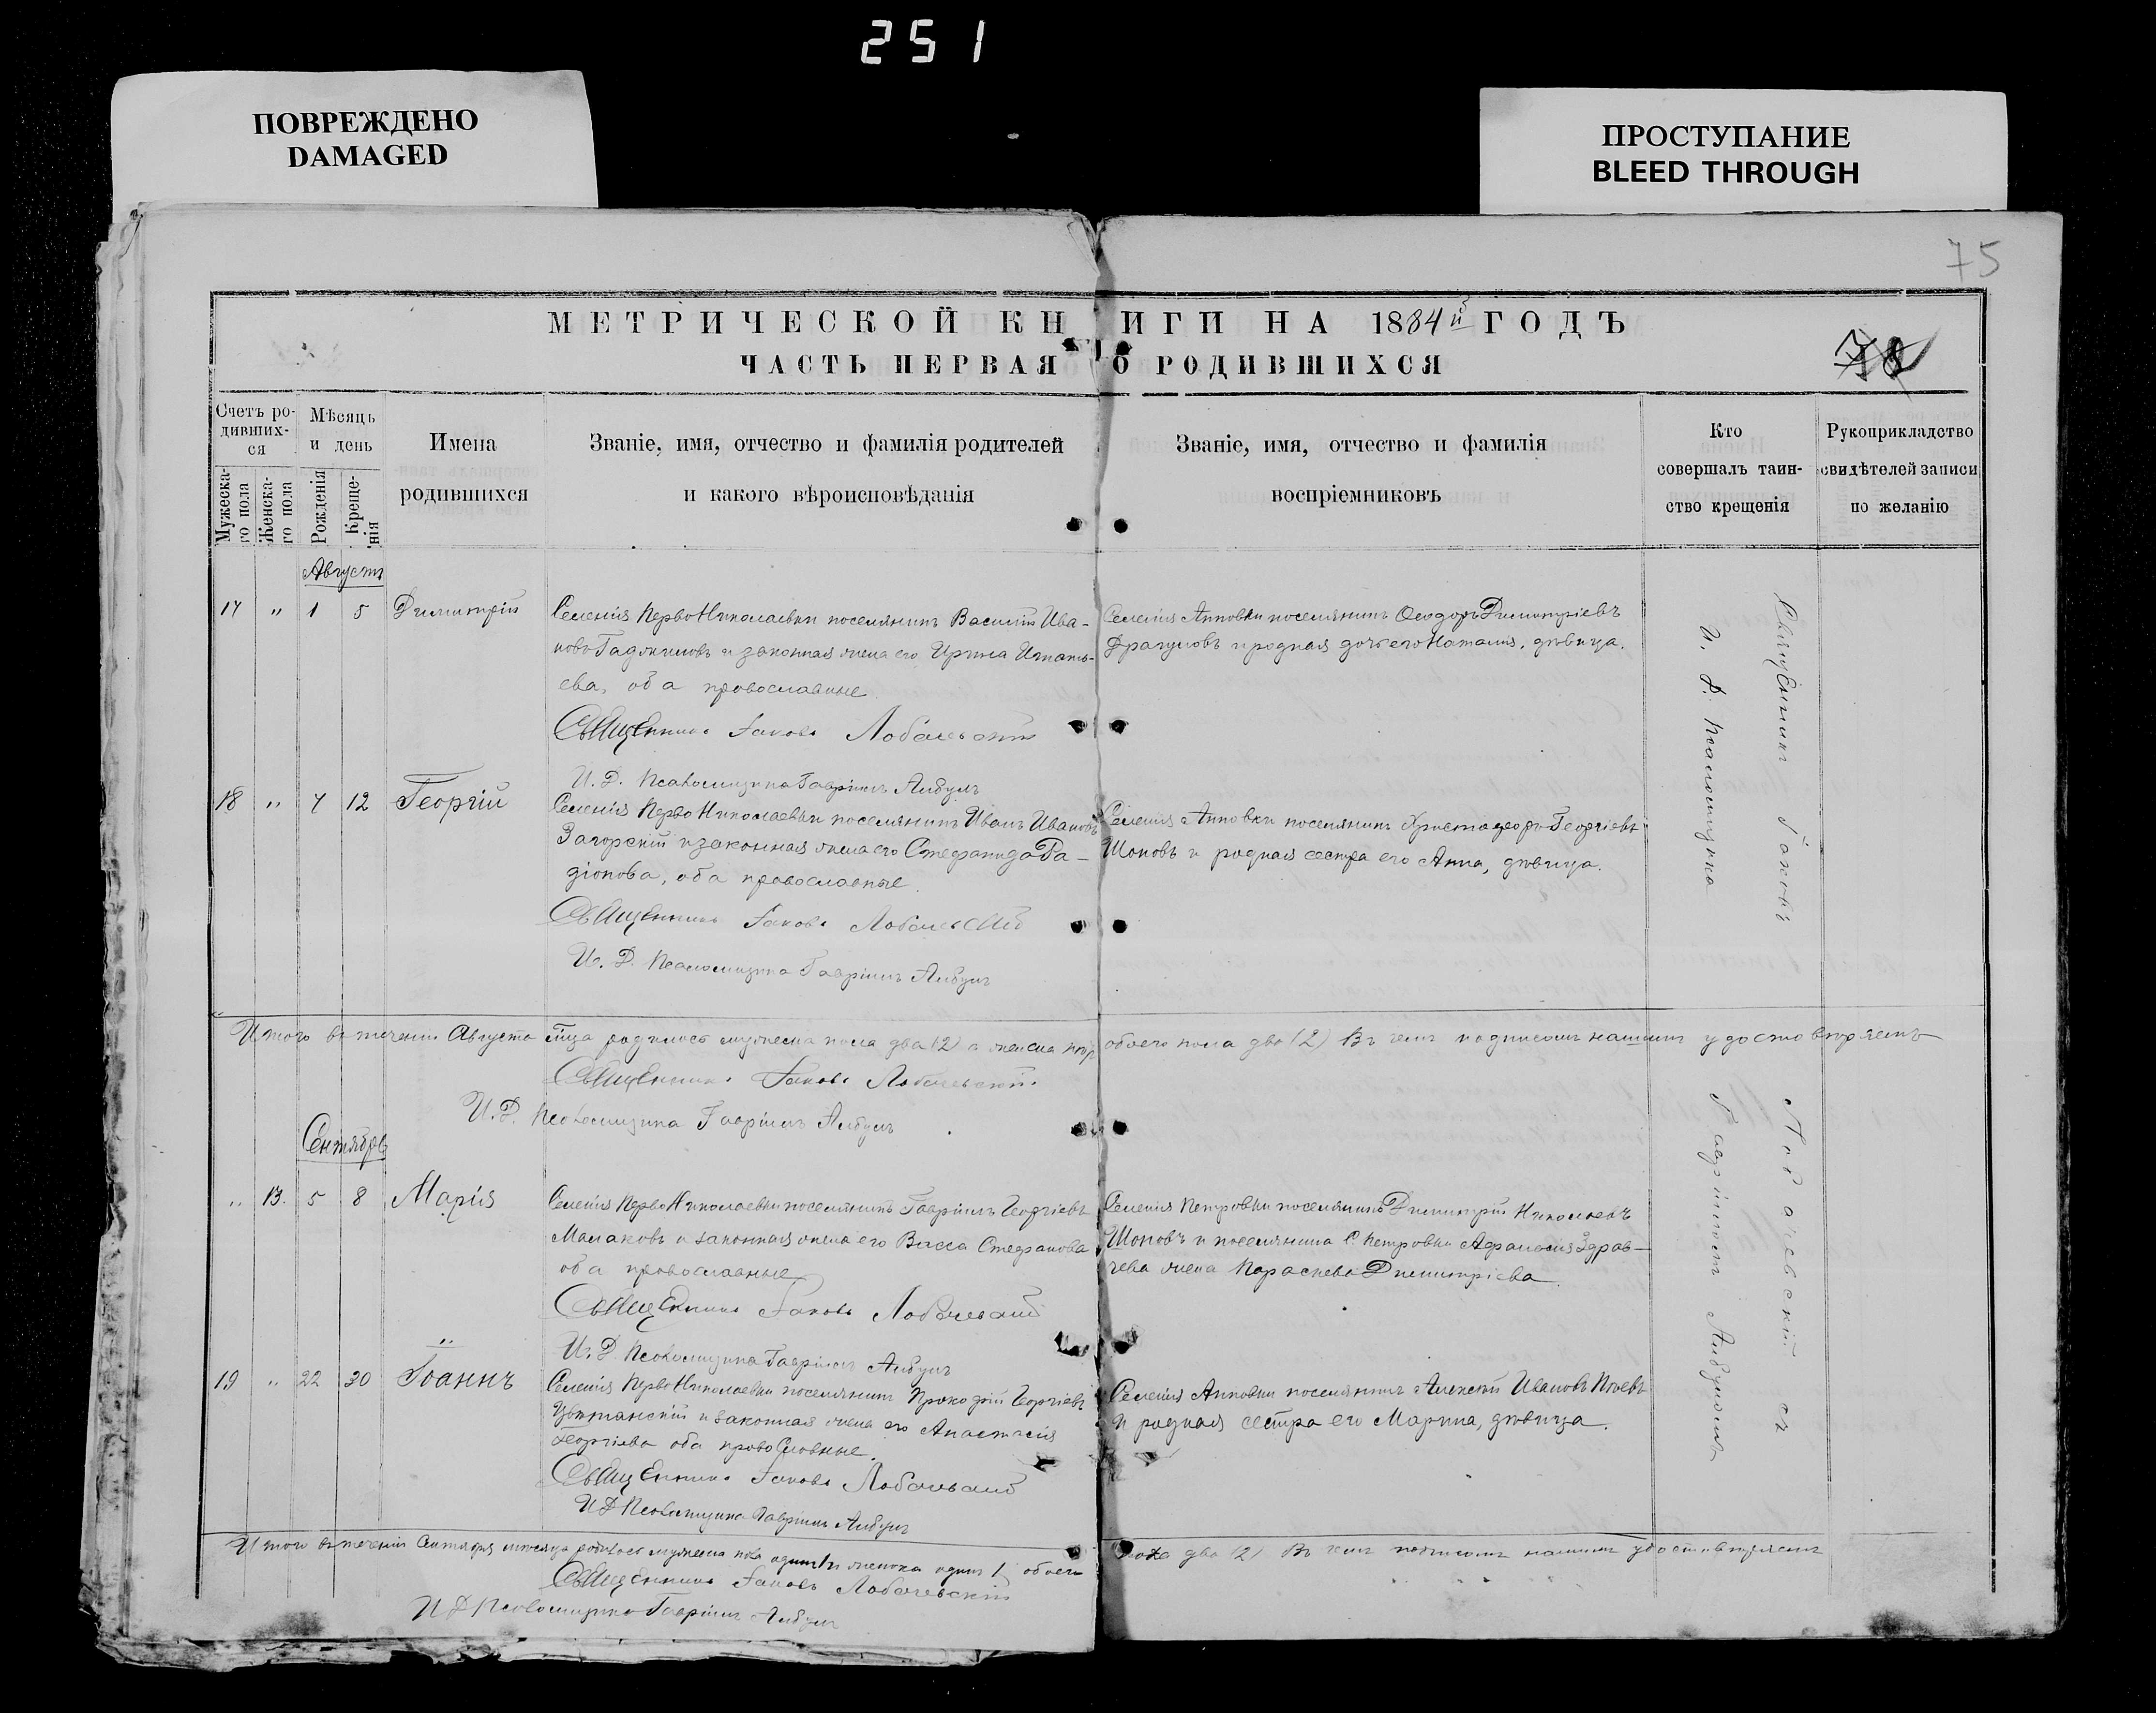 251
ПОВРЕЖДЕНО
DAMAGED
ПРОСТУПАНИЕ
BLEED THROUGH
75
МЕТРИЧЕСКОЙ КНИГИ НА 1884й ГОДЪ
ЧАСТЬ ПЕРВАЯ О РОДИВШИХСЯ
Счетъ ро-
дивших-
ся
Мужеска-
го пола
Женска-
го пола
Мѣсяцъ
и день
Рожденія
Креще-
нія
Имена
родившихся
Званіе, имя, отчество и фамилія родителей
и какого вѣроисповѣданія
Званіе, имя, отчество и фамилія
воспріемниковъ
Кто
совершалъ таин-
ство крещенія
Рукоприкладство
свидѣтелей записи
по желанію
Августъ
17 " 1 5 Димитрій
Селенія Перво Николаевки поселянинъ Василій Ива-
новъ и законная жена его Ирина Игнать-
ева, оба православные
Священникъ Іаковъ Лобачевскій
И. Д. Псаломщика Гавріилъ
Селенія Анновки поселянинъ Ѳеодоръ Димитріевъ
Драгуновъ и родная дочь его Наталія, дѣвица.
18 " 7 12 Георгій
Селенія Перво Николаевки поселянинъ Иванъ Ивановъ
Загорскій и законная жена его Стефанида Ра-
діонова, оба православные.
Священникъ Іаковъ Лобачевскій
И. Д. Псаломщика Гавріилъ
Селенія Анновки поселянинъ Христофоръ Георгіевъ
Шоповъ и родная сестра его Анна, дѣвица.
Итого въ теченіи Августа м-ца родилось мужеска пола два (2) а женска обоего пола два (2) Въ чемъ подписомъ нашимъ удостовѣряемъ
Священникъ Іаковъ Лобачевскій.
И. Д. Псаломщика Гавріилъ
Сентябрь
" 13. 5 8 Марія
Селенія Перво Николаевки поселянинъ Гавріилъ Георгіевъ
Малаковъ и законная жена его Васса Стефанова
оба православные
Священникъ Іаковъ Лобачевскій
И. Д. Псаломщика Гавріилъ
Селенія Петровки поселянинъ Димитрій Николаевъ
Шоповъ и поселянина С. Петровки Афанасія Здрав-
чева жена Параскева Димитріева.
19 " 22 30 Іоаннъ
Селенія Перво Николаевки поселянинъ Прокофій Георгіевъ
и законная жена его Анастасія
Георгіева оба православные.
Священникъ Іаковъ Лобачевскій
И Д Псаломщика Гавріилъ
Селенія Анновки поселянинъ Алексѣй Ивановъ
и родная сестра его Марина, дѣвица.
Итого въ теченіи Сентября мѣсяца родилось мужеска пола одинъ 1 и женска одинъ 1, обоего пола два (2) Въ чемъ подписомъ нашимъ удостовѣряемъ
Священникъ Іаковъ Лобачевскій
И Д Псаломщика Гавріилъ
Священникъ Іаковъ
Лобачевскій съ
И. Д. Псаломщика
Гавріиломъ